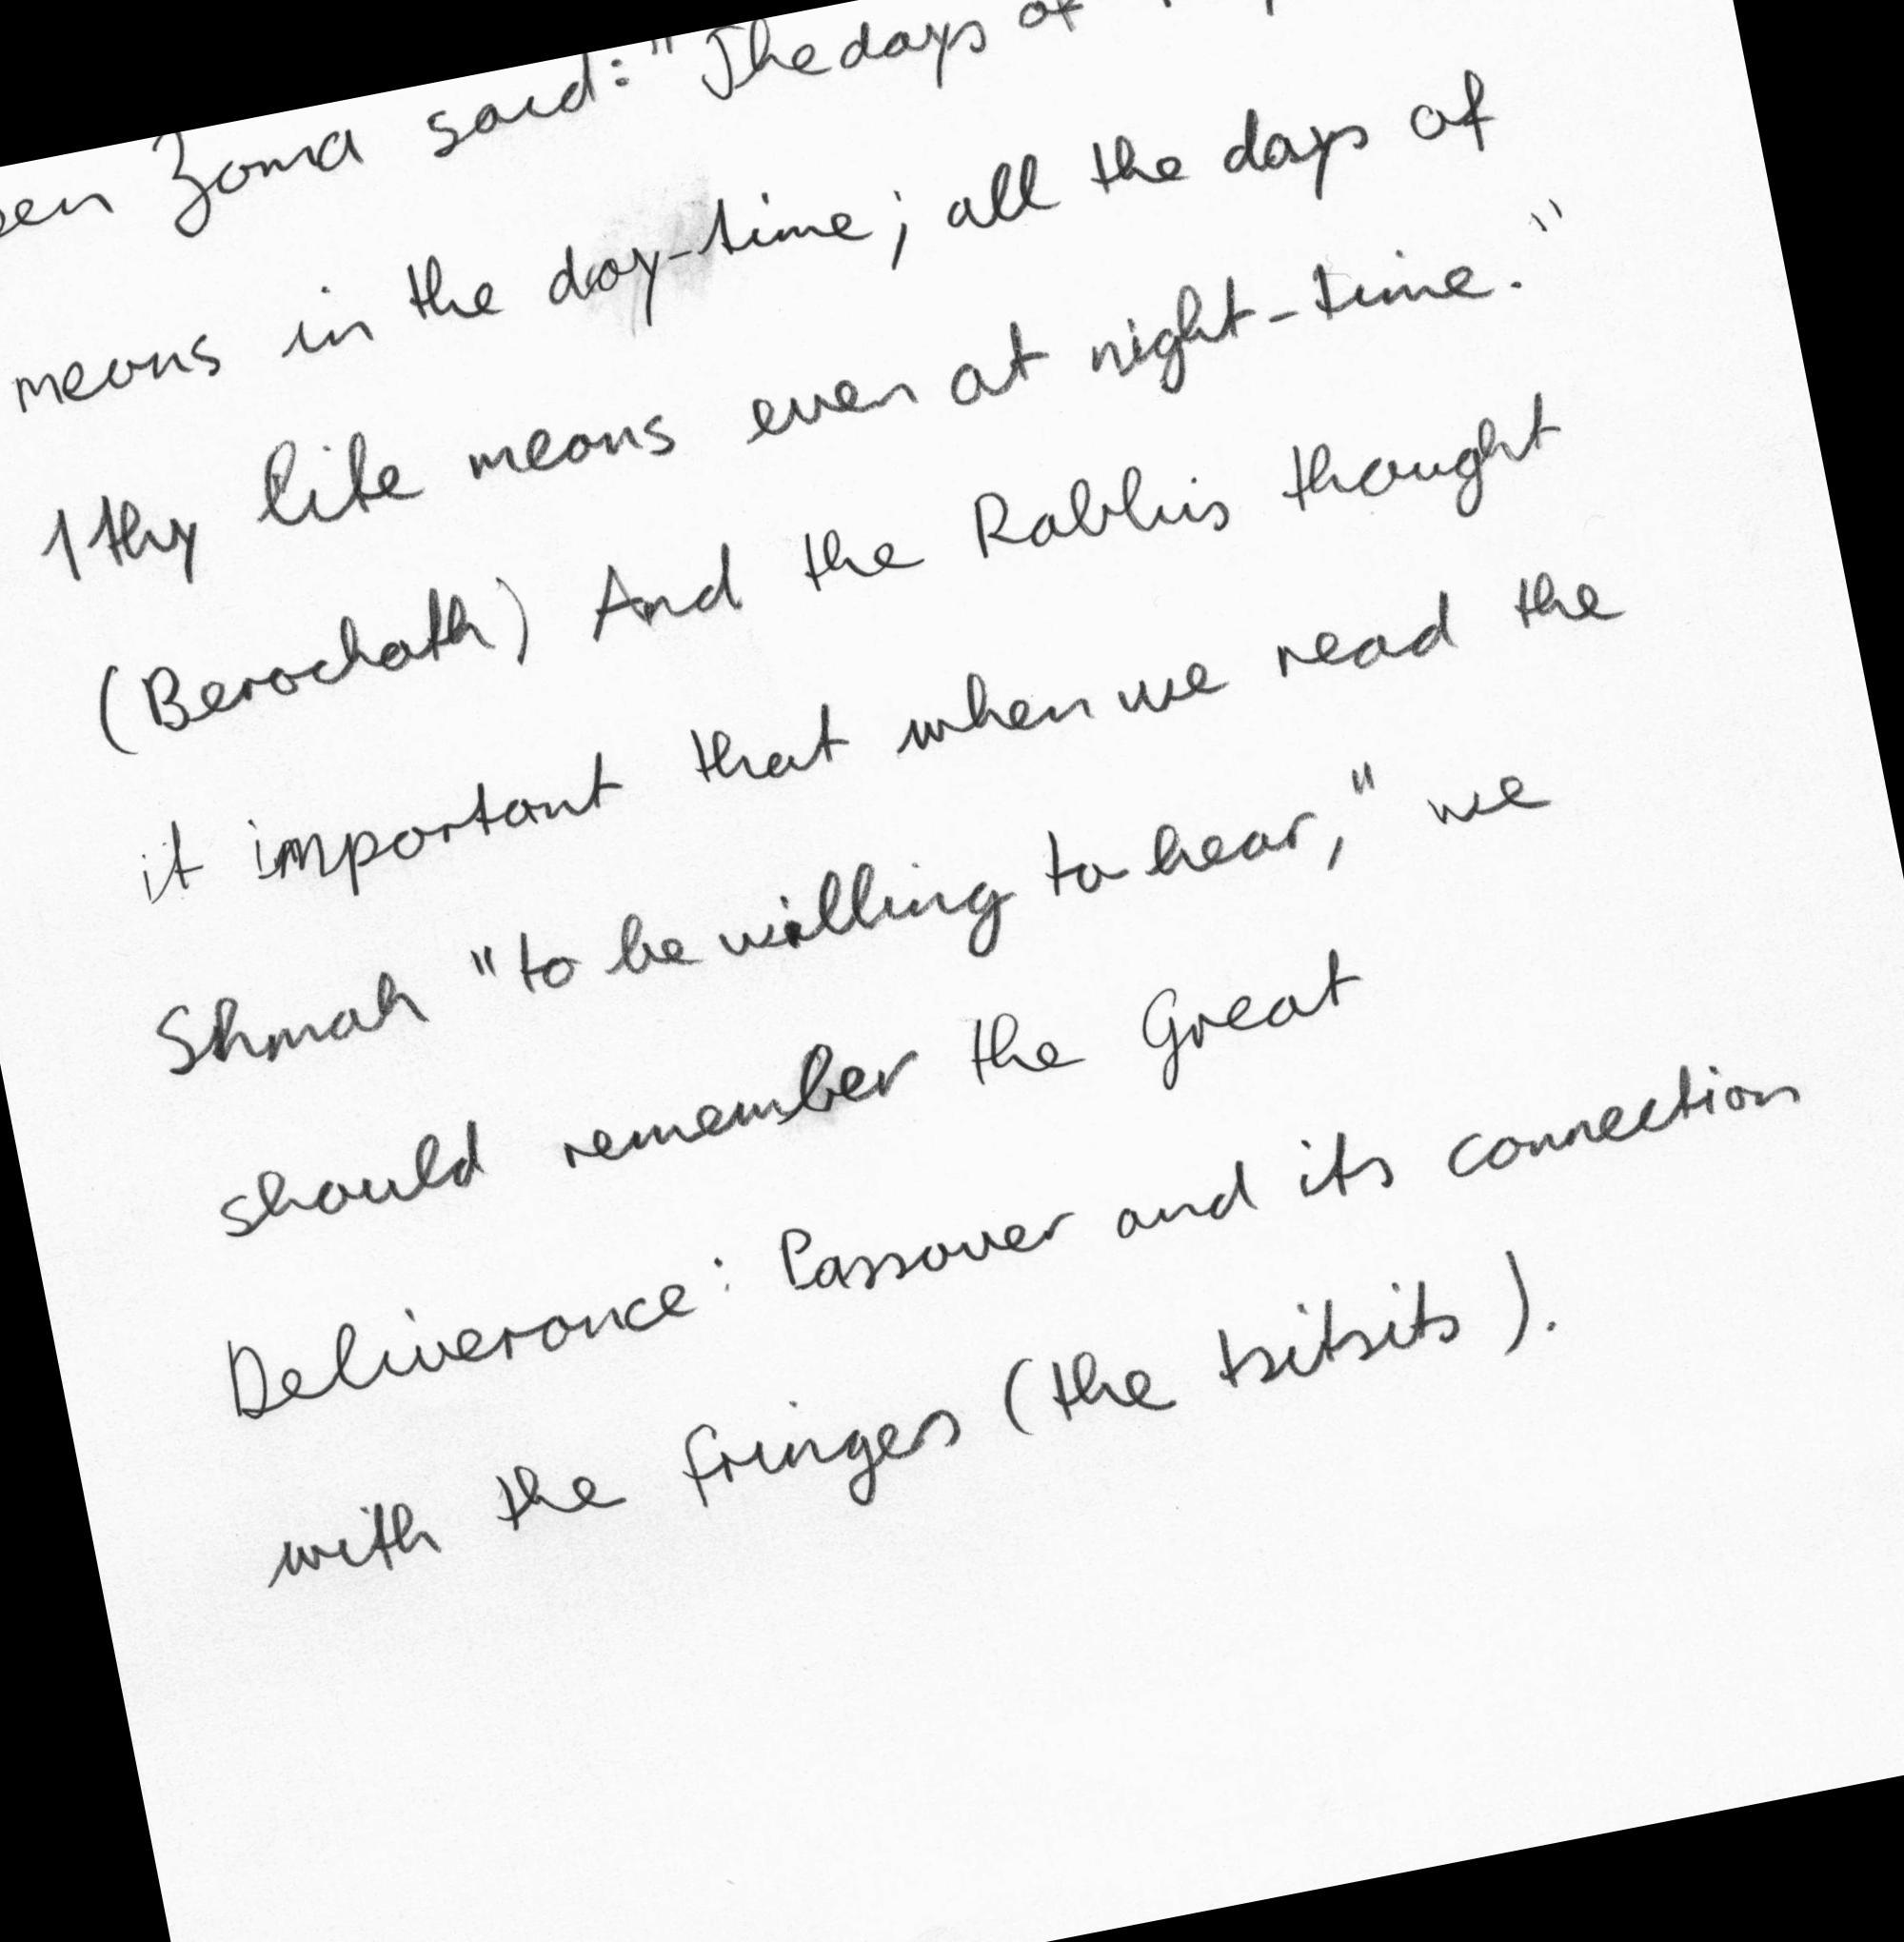 ben Zoma said: "The days of
means in the day-time; all the days of
thy life means even at night-time."
(Berochoth) And the Rabbis thought
it important that when we read the
Shmah "to be willing to hear," we
should remember the Great
Deliverance: Passover and its connection
with the fringes (the tsitsits).